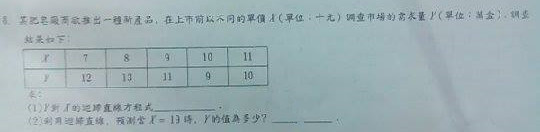 8. 某肥皂廠商欲推出一種新產品，在上市前以不同的單價 X (單位：十元) 調查市場的需求量 Y (單位：萬盒)，調查
結果如下：
X 7 8 9 10 11
Y 12 13 11 9 10
求：
(1) Y 對 X 的迴歸直線方程式________.
(2) 利用迴歸直線，預測當 X = 13 時，Y 的值為多少？________.